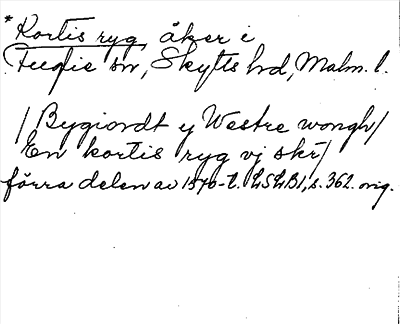 *Kortis ryg åker i
sn, Skytts hd, Malm. l.
/ Bygiordt y Westre wongh/
En kortis ryg vj skr/
förra delen av 1570-t. LSLB1, s. 362. orig.